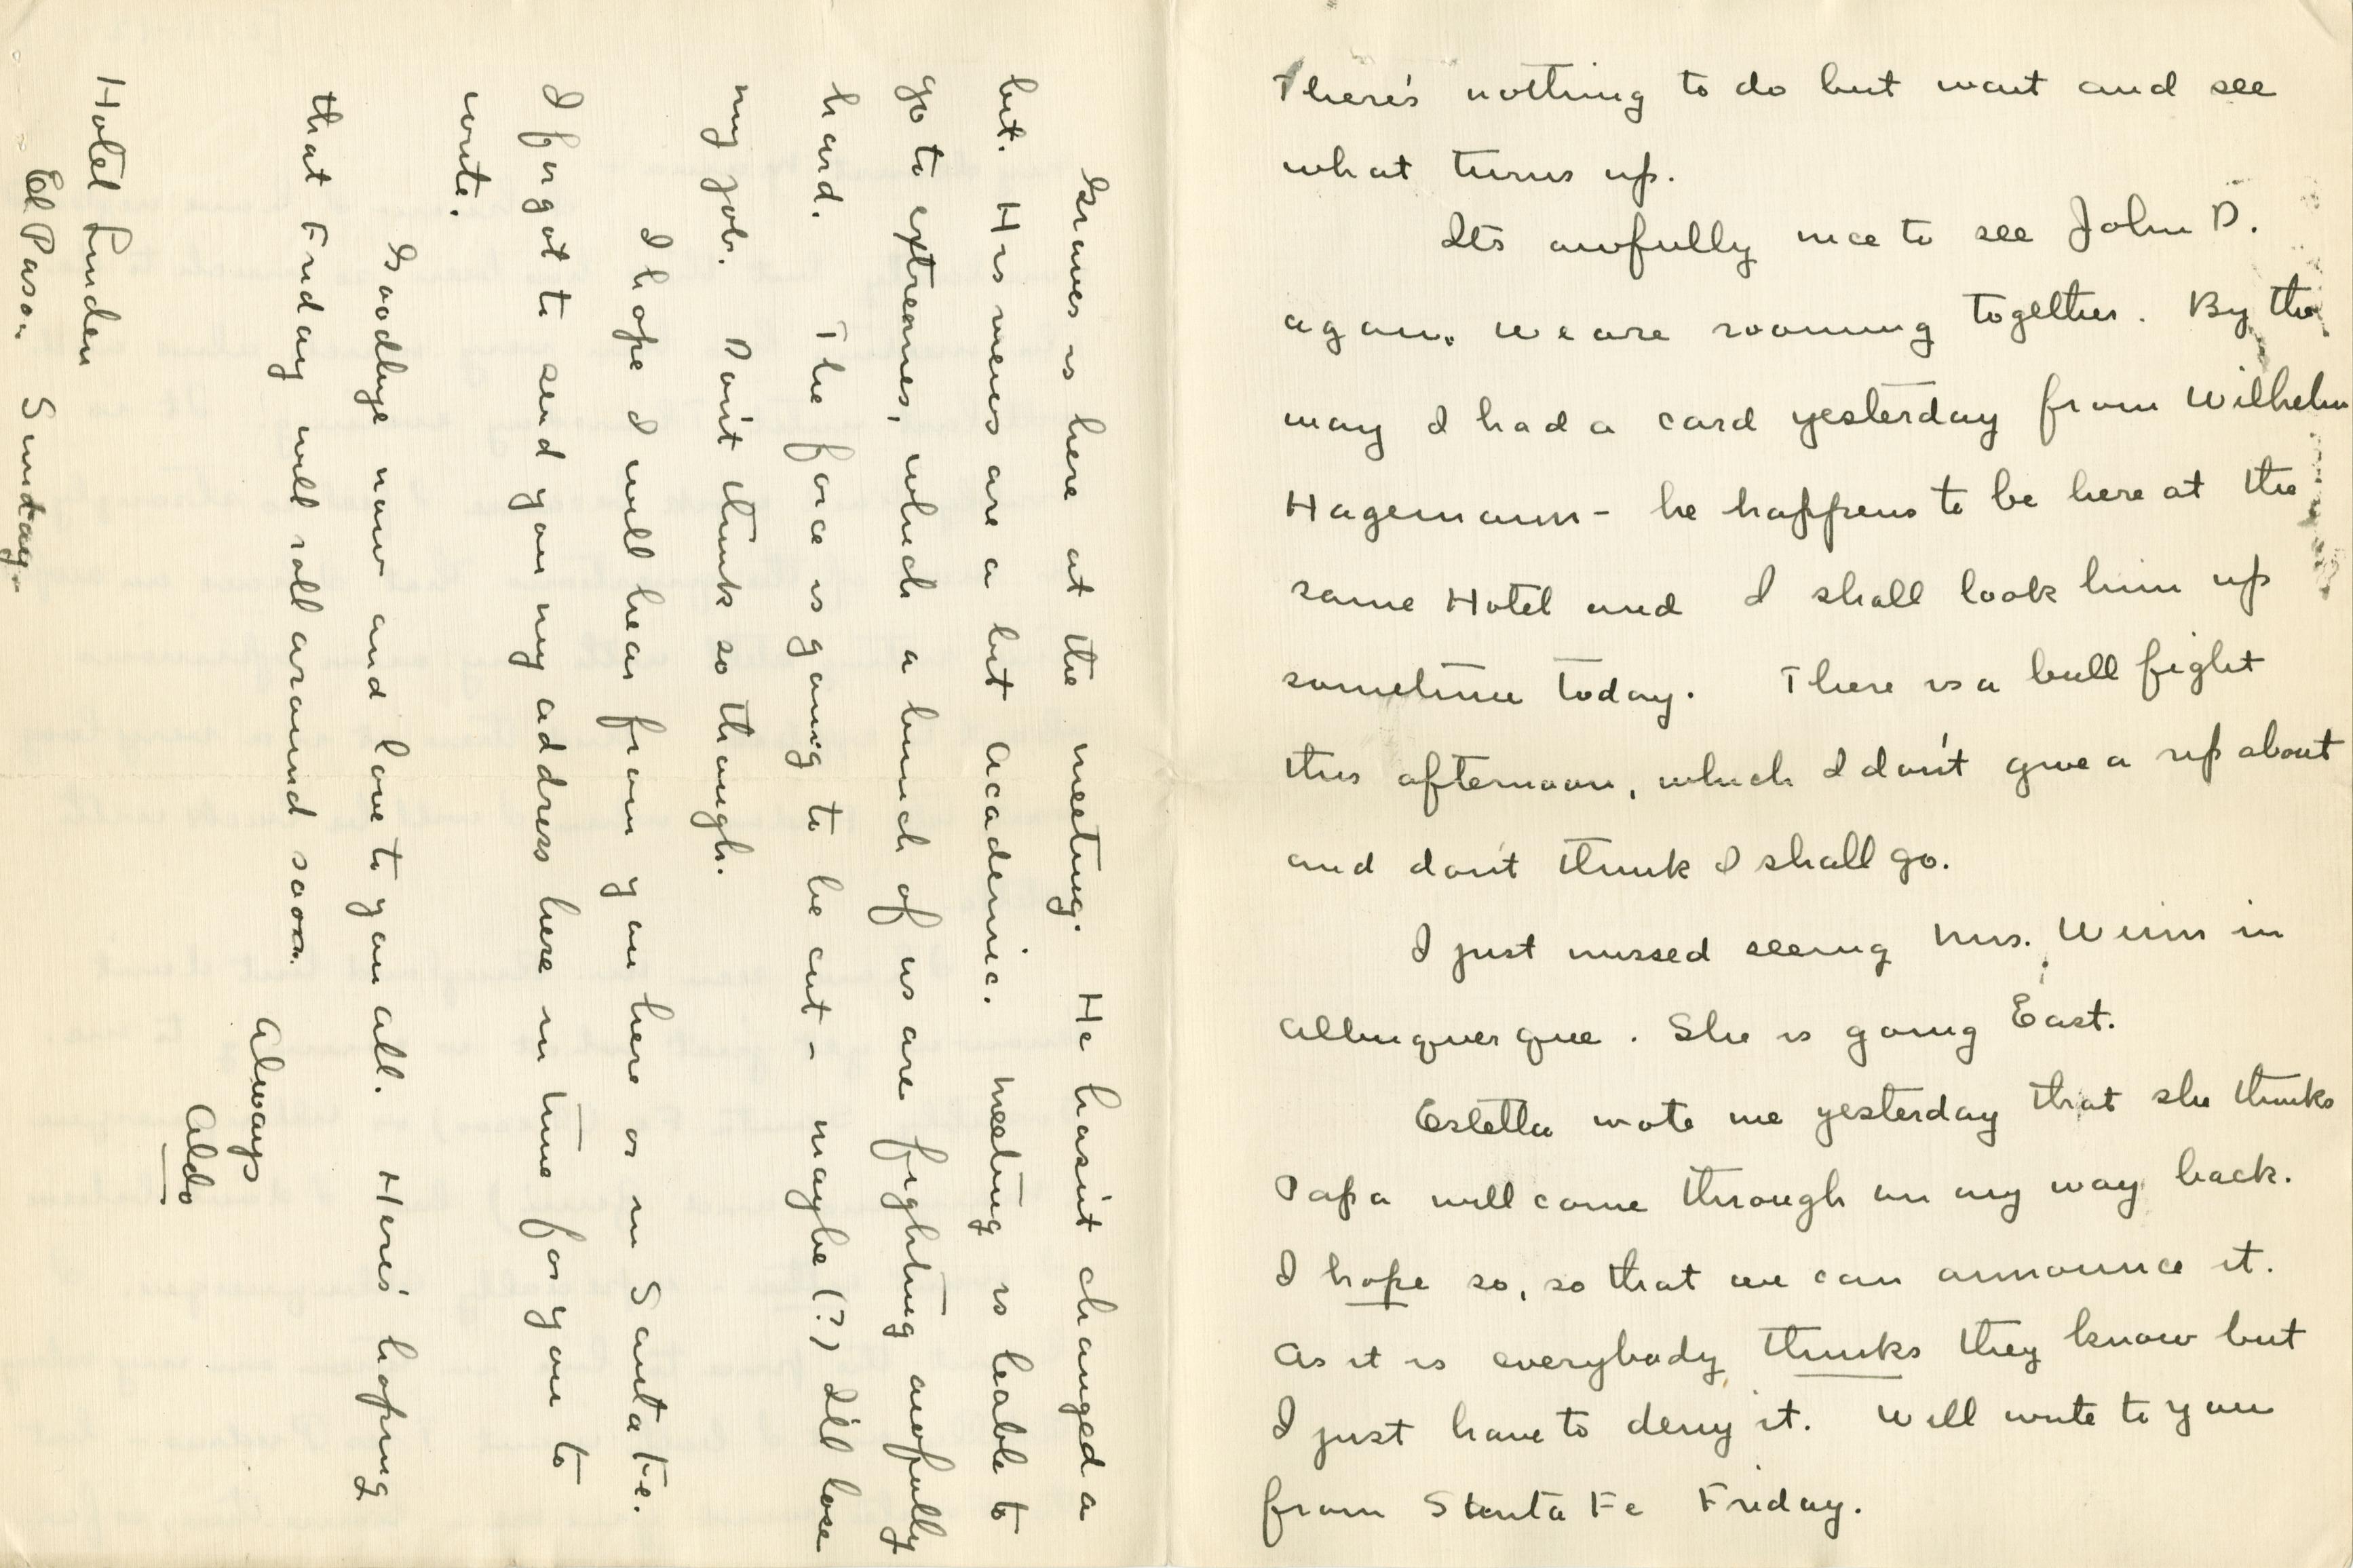 There's nothing to do but wait and see
what turns up.
Its awfully nice to see John D.
again. We are rooming together. By the
way I had a card yesterday from Wilhelm
Hagemann - he happens to be here at the
same Hotel and I shall look him up
sometime today. There is a bull fight
this afternoon, which I don't give a rip about
and don't think I shall go.
I just missed seeing Mrs. Winn in
Albuquerque. She is going East.
Estella wote me yesterday that she thinks
Papa will come through on my way back.
I hope so, so that we can announce it.
As it is everybody thinks they know but
I just have to deny it. Will write to you
from Santa Fe Friday.
Graves is here at the meeting. He hasn't changed a
bit. His views are a bit academic. Meeting is liable to
go to extremes, which a bunch of us are fighting awfully
hard. The force is going to be cut - maybe (?) I'll lose
my job. Don't think so though.
I hope I will hear from you here or in Santa Fe.
I forgot to send you my address here in time for you to
write.
Goodbye now and love to you all. Here's hoping
that Friday will roll around soon.
Always
Aldo
Hotel Linden
El Paso. Sunday.